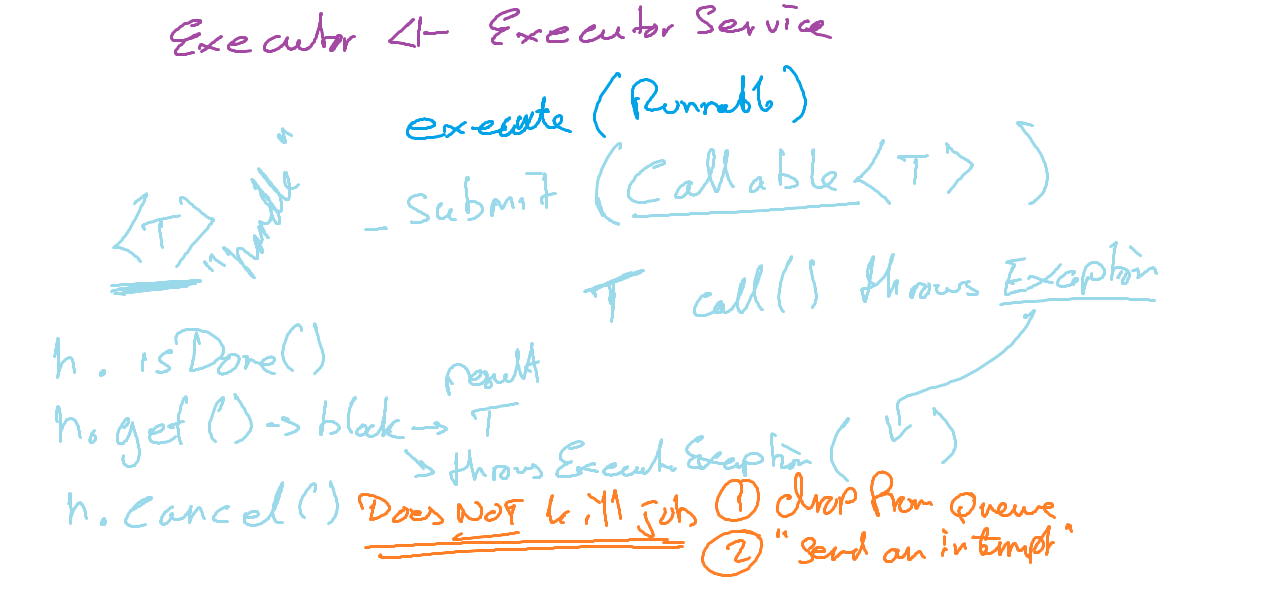 Executor <|- Executor Service
execute (Runnable)
<T> "handle" - submit (Callable<T> )
T call() throws Exception
h. isDone()
result
h. get () -> block -> T
throws Execut. Exception ( )
h. cancel() Does NOT kill job ① drop from queue
② "send an interrupt"